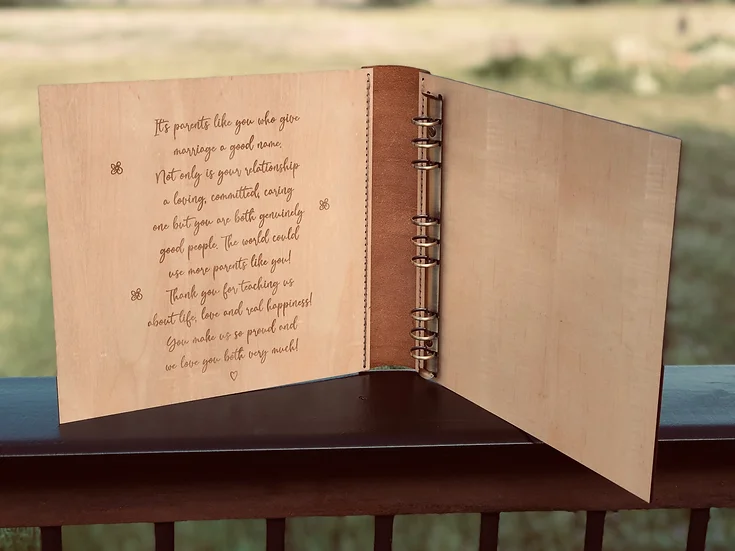 It's parents like you who give
marriage a good name.
Not only is your relationship
a loving, committed, caring
one but you are both genuinely
good people. The world could
use more parents like you!
Thank you for teaching us
about life, love and real happiness!
You make us so proud and
we love you both very much!